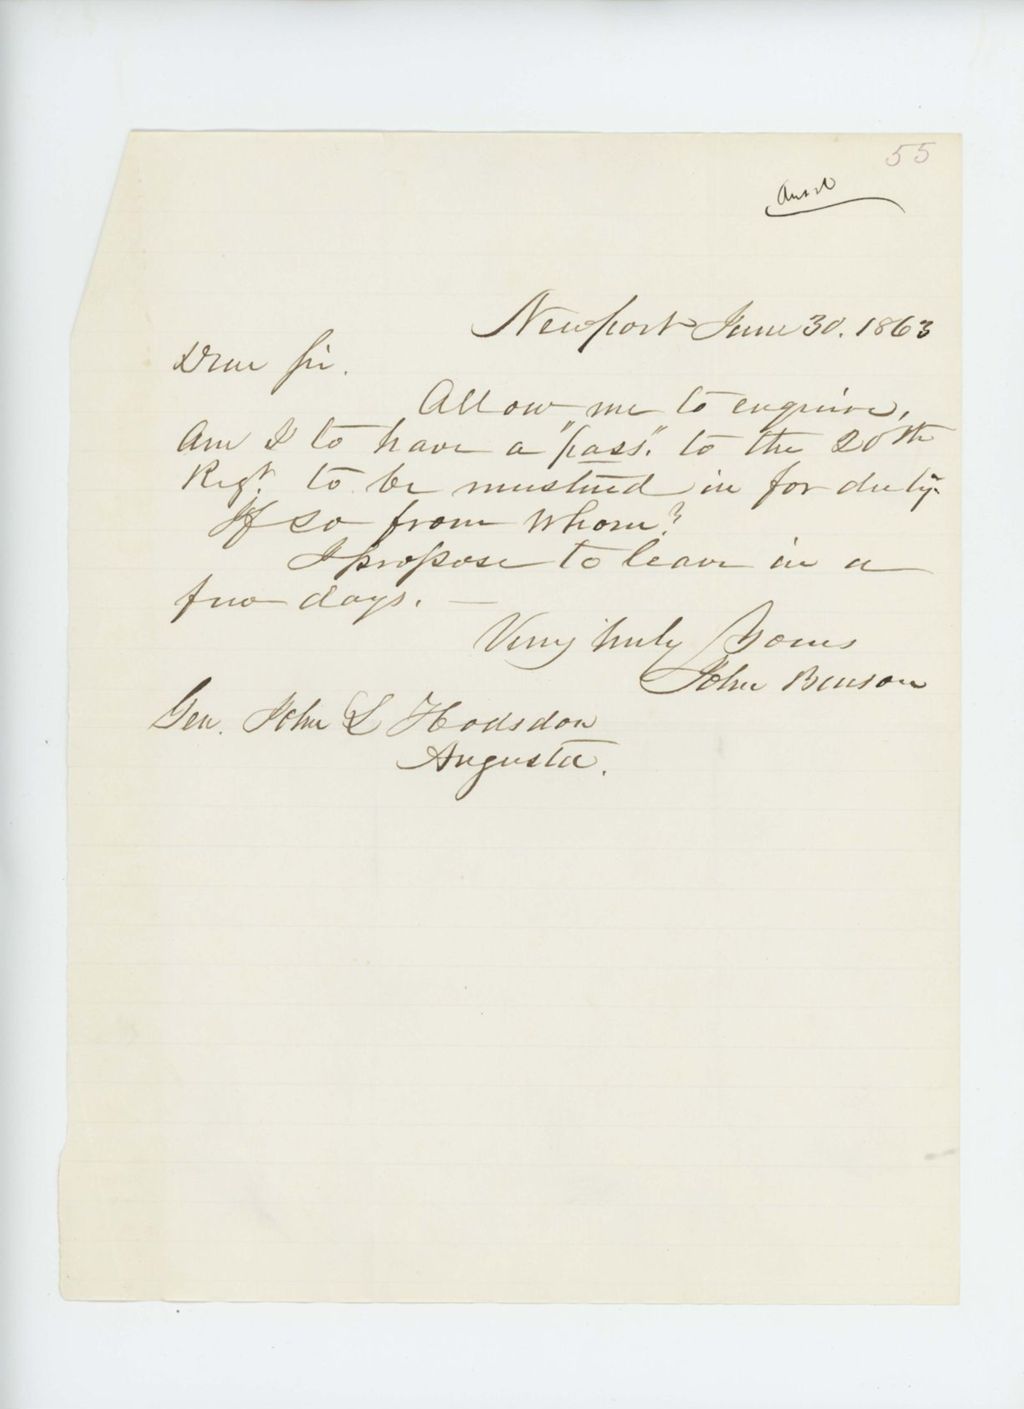 55
Newport June 30. 1863
Dear Sir.
Allow me to enquire,
Am I to have a "pass." to the 20th
Regt. to be mustered in for duty-
If so from whom?
I propose to leave in a
few days. —
Very truly Yours
John Benson
Gen. John L Hodsdon
Augusta.